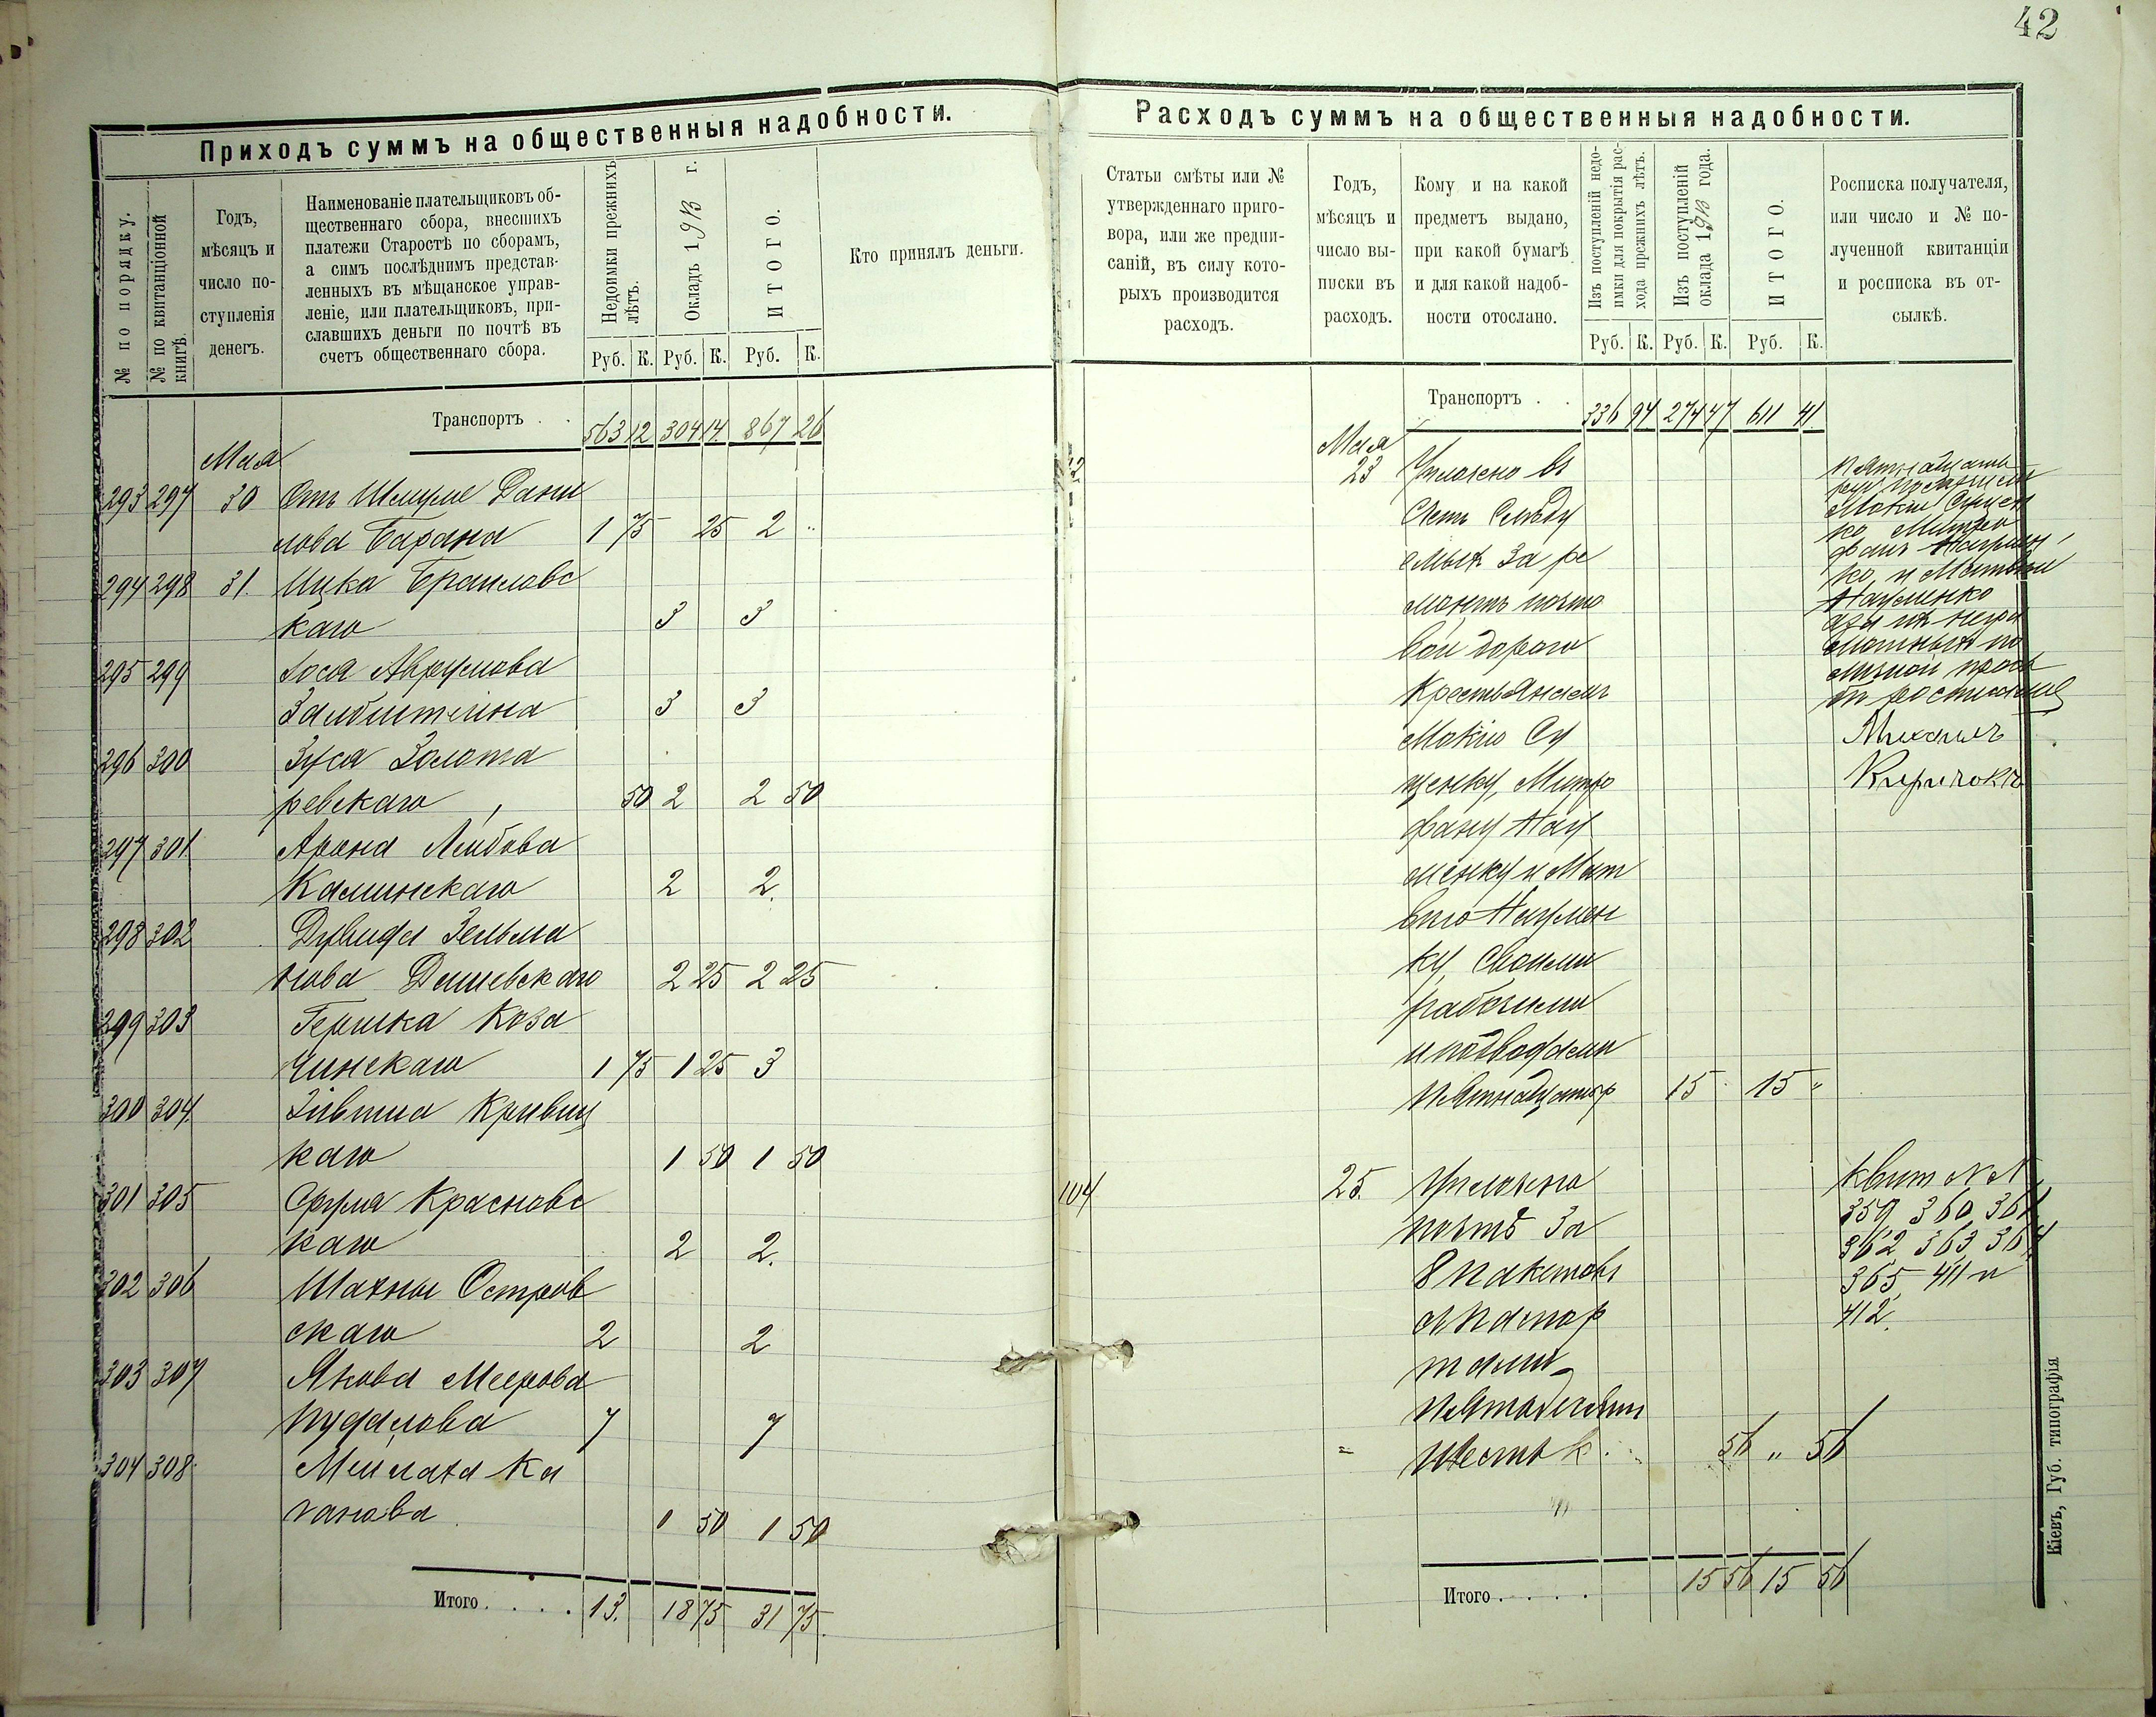 42
Приходъ суммъ на общественныя надобности.
№ по порядку.
№ по квитанціонной книгѣ.
Годъ,
мѣсяцъ и
число по-
ступленія
денегъ.
Наименованіе плательщиковъ об-
щественнаго сбора, внесшихъ
платежи Старостѣ по сборамъ,
а симъ послѣднимъ представ-
ленныхъ въ мѣщанское управ-
леніе, или плательщиковъ, при-
славшихъ деньги по почтѣ въ
счетъ общественнаго сбора.
Недоимки прежнихъ
лѣтъ.
Окладъ 1913 г.
ИТОГО.
Руб. К. Руб. К. Руб. К.
Кто принялъ деньги.
Транспортъ . . 563 12 304 14. 867 26
Мая
293 297 30 Отъ Шмуля Дани
лова Барана 1 75 25 2 "
294 298 31. Ицка Браиловс
каго 3 3
295 299 Іося Аврумова
Залбштейна 3 3
296 300 Зуся Золота
ревскаго 50 2 2 50
297 301. Арона Лейбова
Калинскаго 2 2.
298 302 Дувида Зельма
нова Дашевскаго 2 25 2 25
299 303 Гершка Коза
чинскаго 1 75 1 25 3
300 304. Кривиц
каго 1 50 1 50
301 305 Сруля Красновс
каго 2 2.
302 306 Шахны Остров
скаго 2 2
303 307 Якова Меерова
Пудалова 7 7
304 308. Мейлаха Ка
ганова 1 50 1 50
Итого . . . . 13. 18 75 31 75.
Расходъ суммъ на общественныя надобности.
Статьи смѣты или №
утвержденнаго приго-
вора, или же предпи-
саній, въ силу кото-
рыхъ производится
расходъ.
Годъ,
мѣсяцъ и
число вы-
писки въ
расходъ.
Кому и на какой
предметъ выдано,
при какой бумагѣ
и для какой надоб-
ности отослано.
Изъ поступленій недо-
имки для покрытія рас-
хода прежнихъ лѣтъ.
Изъ поступленій
оклада 1913 года.
ИТОГО.
Руб. К. Руб. К. Руб. К.
Росписка получателя,
или число и № по-
лученной квитанціи
и росписка въ от-
сылкѣ.
Транспортъ . . 336 94 274 47 611 41.
Мая
23 Уплочено въ
счетъ слѣду
емыхъ за ре
монтъ почто
вой дороги
крестьянамъ
Мокію Су
щенку, Митро
фану Нау
менку и Мат
вѣю Наумен
ку, своими
рабочими
и подводами
пятнадцать р 15 15 "
Пятнадцать
руб получили
Мокій Сущен
ко, Митро
фанъ Наумен
ко, и Матвѣй
Науменко
а за ихъ негра
мотныхъ по
личной прось
бѣ росписался
Михаилъ
Киричокъ
104 25. Уплочено
почтѣ за
8 пакетовъ
съ паспор
тами
пятьдесятъ
= шесть к. 56 " 56
Квит N N
359, 360 361,
362, 363, 364,
365, 411 и
412.
Итого . . . . . 15 56 15 56
Кіевъ, Губ. типографія